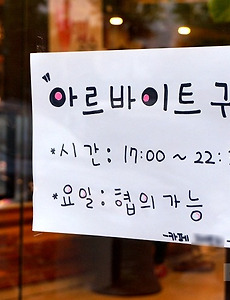 "아르바이트 구
*시간: 17:00~22:
*요일: 협의가능
-카페